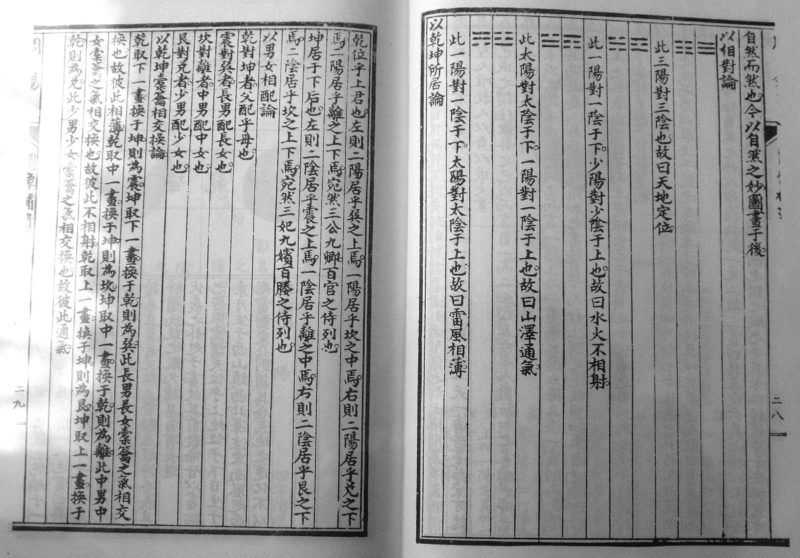 自然而然也今以自然之妙圖畫于後
以相對論
此三陽對三陰也故曰天地定位
此一陽對一陰于下少陽對少陰于上也故曰水火不相射
此太陽對太陰于下一陽對一陰于上也故曰山澤通氣
此一陽對一陰于下太陽對太陰于上也故曰雷風相薄
以乾坤所居論
二八
乾位乎上君也左則二陽居乎巽之上焉一陽居乎坎之中焉右則二陽居乎兌之下
焉二陽居乎離之上下焉宛然三公九卿百官之侍列也
坤居于下后也左則二陰居乎震之上焉一陰居乎離之中焉右則二陰居乎艮之下
焉二陰居乎坎之上下焉宛然三妃九嬪百媵之侍列也
以男女相配論
乾對坤者父配乎母也
震對巽者長男配長女也
坎對離者中男配中女也
艮對兌者少男配少女也
以乾坤橐籥相交換論
乾取下一畫換于坤則為震坤取下一畫換于乾則為巽此長男長女橐籥之氣相交
換也故彼此相薄乾取中一畫換于坤則為坎坤取中一畫換于乾則為離此中男中
女橐籥之氣相交換也故彼此不相射乾取上一畫換于坤則為艮坤取上一畫換于
乾則為兌此少男少女橐籥之氣相交換也故彼此通氣
二九